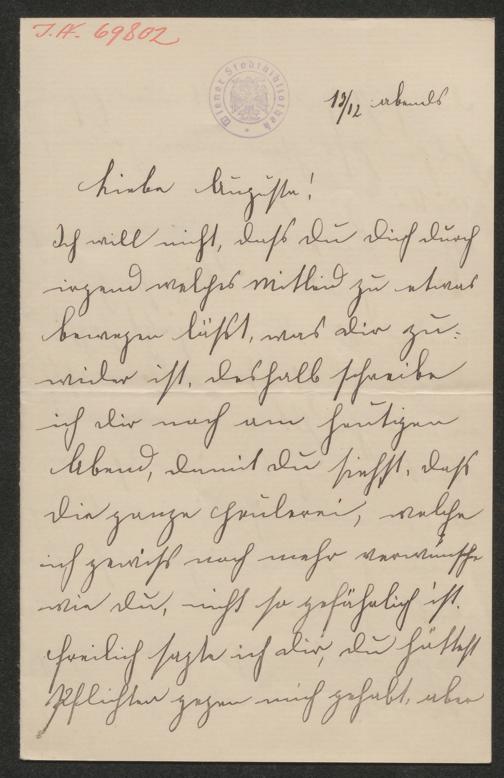 I.N. 69802
Wiener Stadtbibliothek
13/12 abends
Liebe Auguste!
Ich will nicht, dass du dich durch
irgend welches Mitleid zu etwas
bewegen lässt, was dir zu-
wider ist, deshalb schreibe
ich dir noch am heutigen
Abend, damit du siehst, dass
die ganze, welche
ich gewiss noch mehr verwünsche
wie du, nicht so gefährlich ist.
Freilich sagte ich dir, du hättest
Pflichten gegen mich gehabt, aber